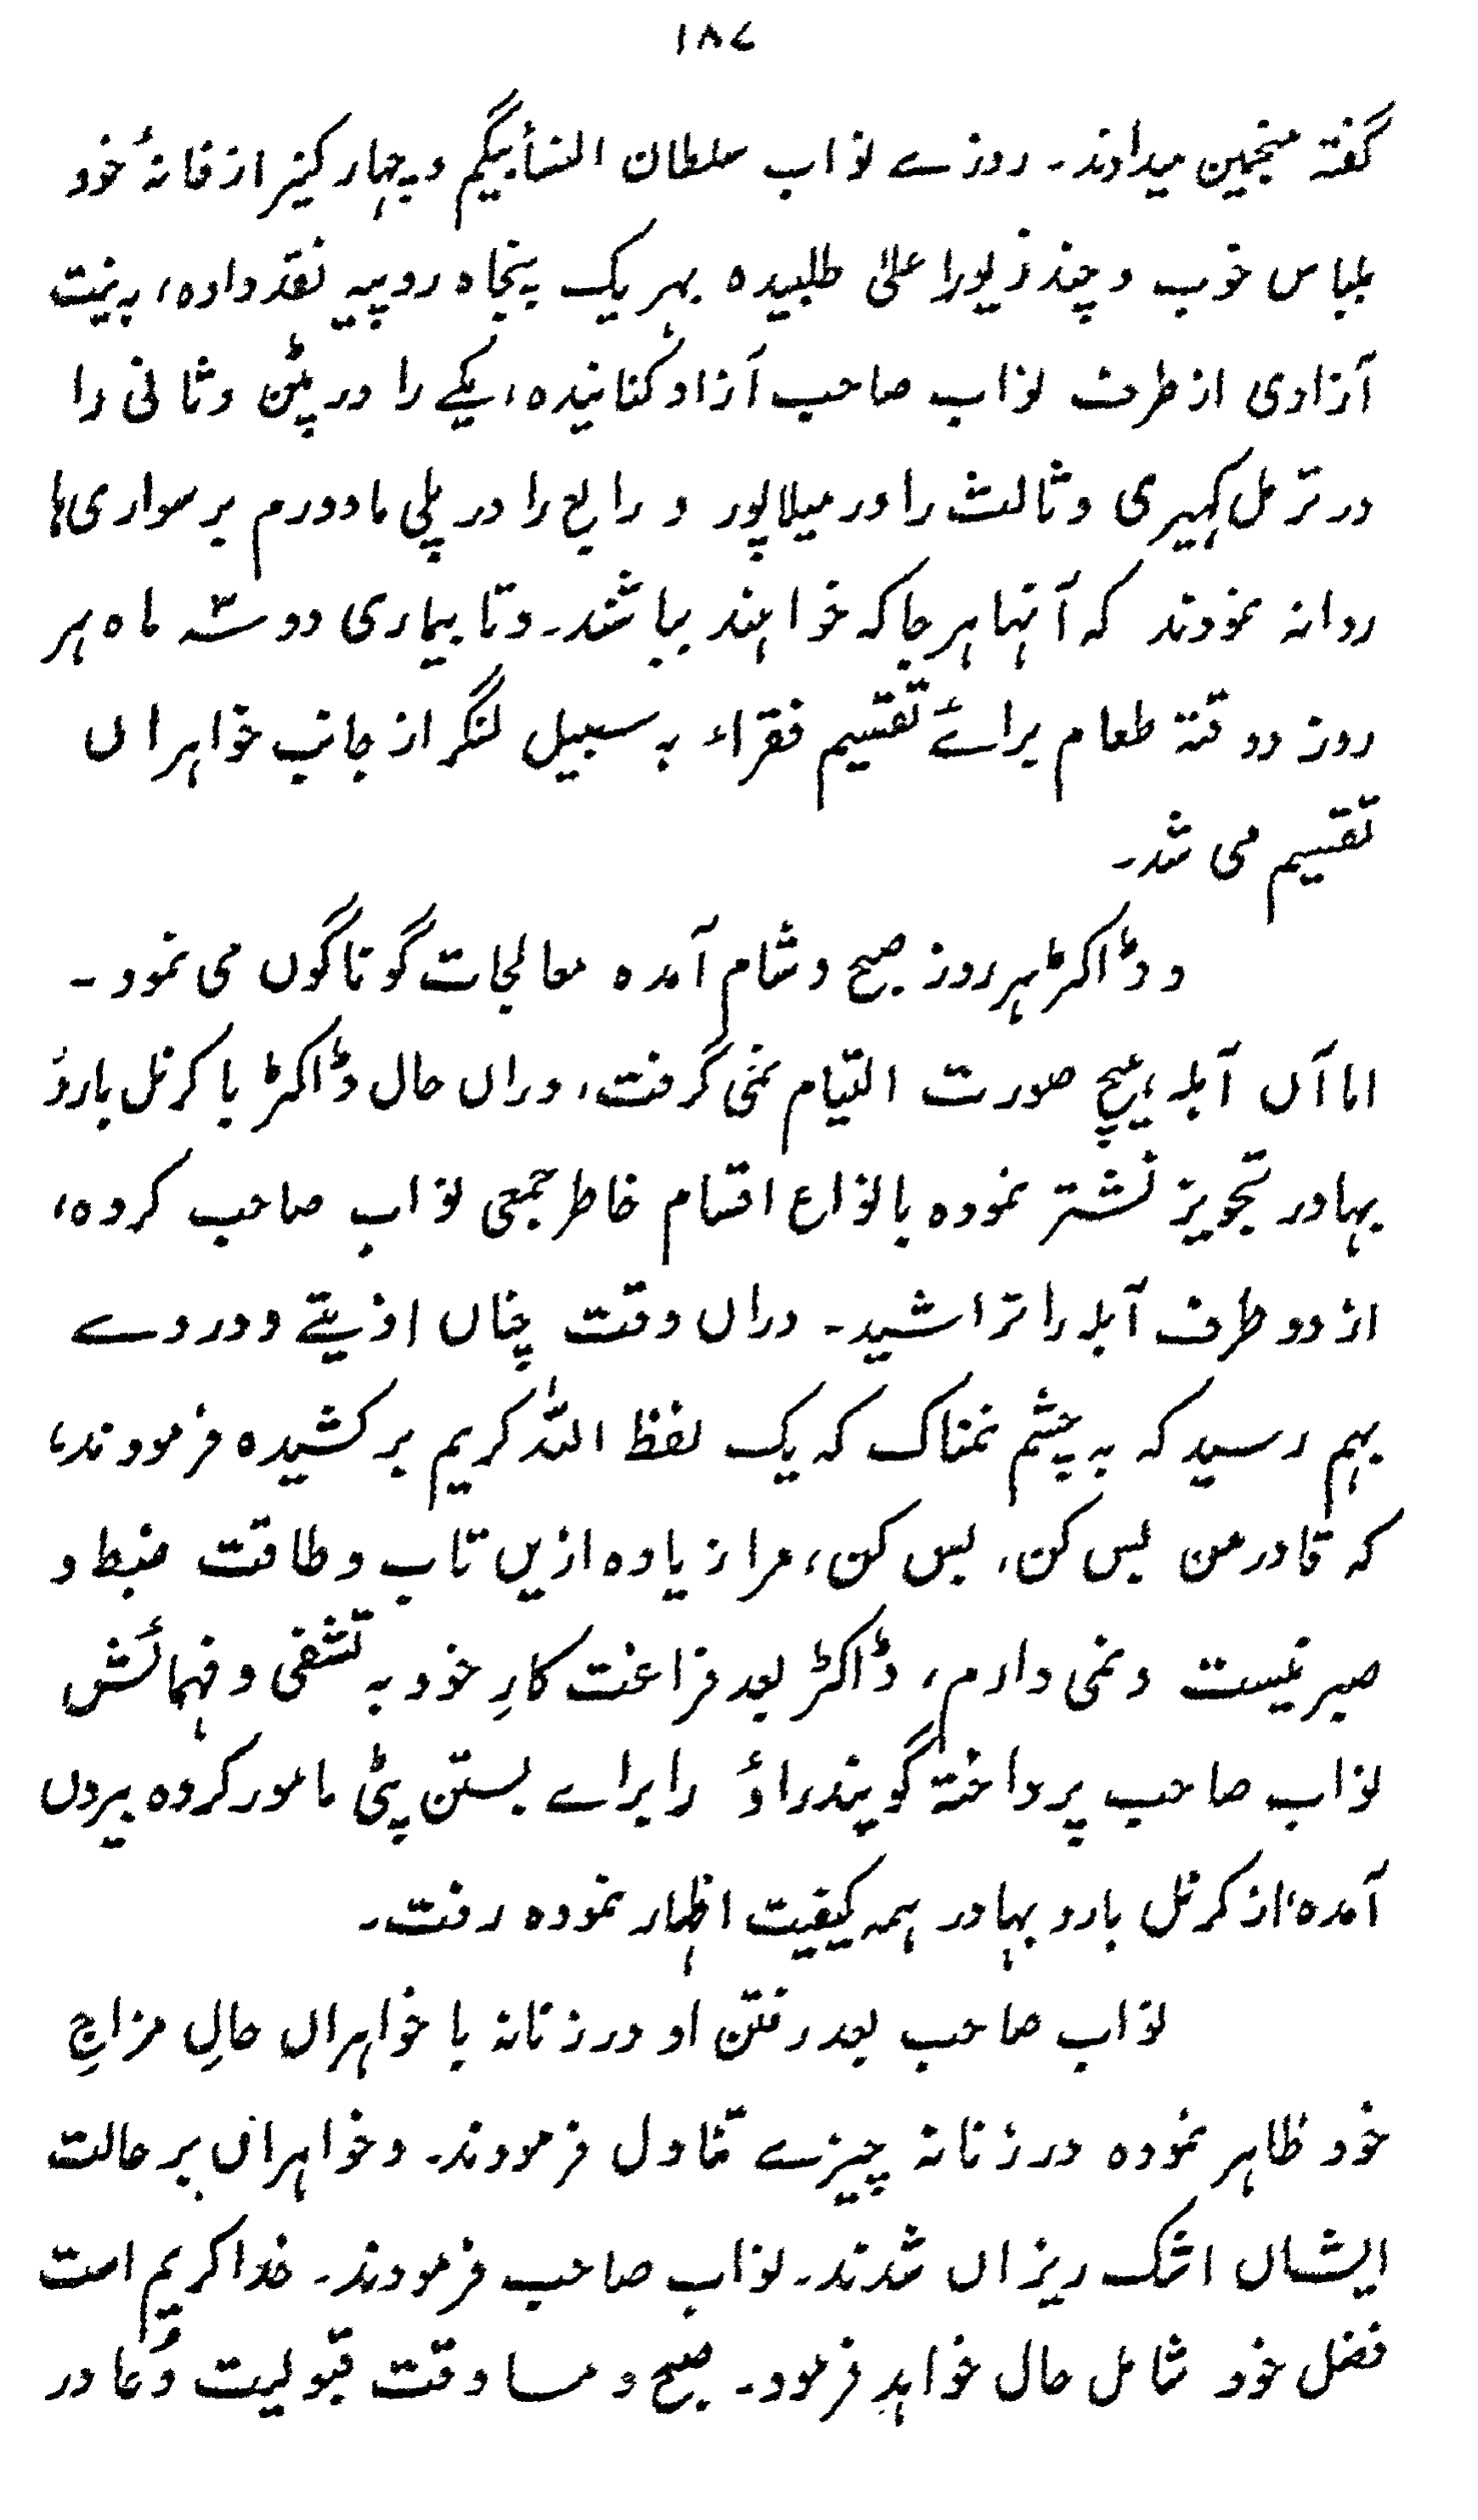 ۱۸۷
گفتۂ منجمین میدادند۔ روزے نواب سلطان النسأبیگم دبہ چہار کنیز از خانۂ خود
بلباس خوب و چند زیور اعلیٰ طلبیدہ بہر یک پنجاہ روپیہ نقد دادہ، بہ نیت
آزادی از طرف نواب صاحب آزاد کنانیدہ، یکے را در پٹن و ثانی را
در ترمل کہیری و ثالث را در میلاپور و رابع را در پلی مادورم بر سواری ہا
روانہ نمودند کہ آنہا ہر جا کہ خواہند بباشند۔ و تا بیماری دو سہ ماہ ہر
روز دو وقتہ طعام برائے تقسیم فقراء بہ سبیل لنگر از جانب خواہراں
تقسیم می شد۔
و ڈاکٹر ہر روز صبح و شام آمدہ معالجات گوناگوں می نمود۔
اما آں آبلہ ہیچ صورت التیام نمی گرفت، دراں حال ڈاکٹر با کرنل بارڈ
بہادر تجویز نشتر نمودہ بانواع اقسام خاطر جمعی نواب صاحب کردہ،
از دو طرف آبلہ را تراشید۔ دراں وقت چناں اذیتے و دردے
بہم رسید کہ بہ چشم نمناک کہ یک لفظ اللہ کریم بر کشیدہ فرمودند،
کہ قادر من بس کن، بس کن، مرا زیادہ ازیں تاب و طاقت ضبط و
صبر نیست و نمی دارم، ڈاکٹر بعد فراغت کارِ خود بہ تشفی و فہمائش
نواب صاحب پرداختہ گویندراؤ را براے بستن پٹی مامور کردہ بیروں
آمدہ، از کرنل بارد بہادر ہمہ کیفیت اظہار نمودہ رفت۔
نواب صاحب بعد رفتن او در زنانہ با خواہراں حالِ مزاجِ
خود ظاہر نمودہ در زنانہ چیزے تناول فرمودند۔ و خواہراں بر حالت
ایشاں اشک ریزاں شدند۔ نواب صاحب فرمودند۔ خدا کریم است
فضل خود شامل حال خواہد فرمود۔ صبح و مسا وقت قبولیت دُعا در